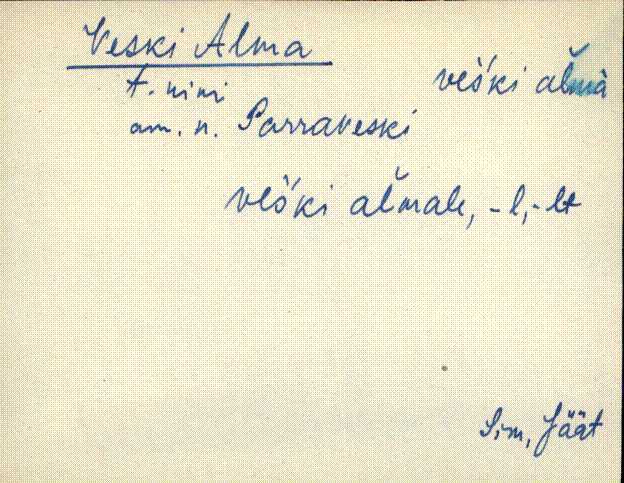 Veski Alma
veški aľmà
t. nimi
am. n. Parraveski
veški aľmale, -l, -lt
Sim, Jäät